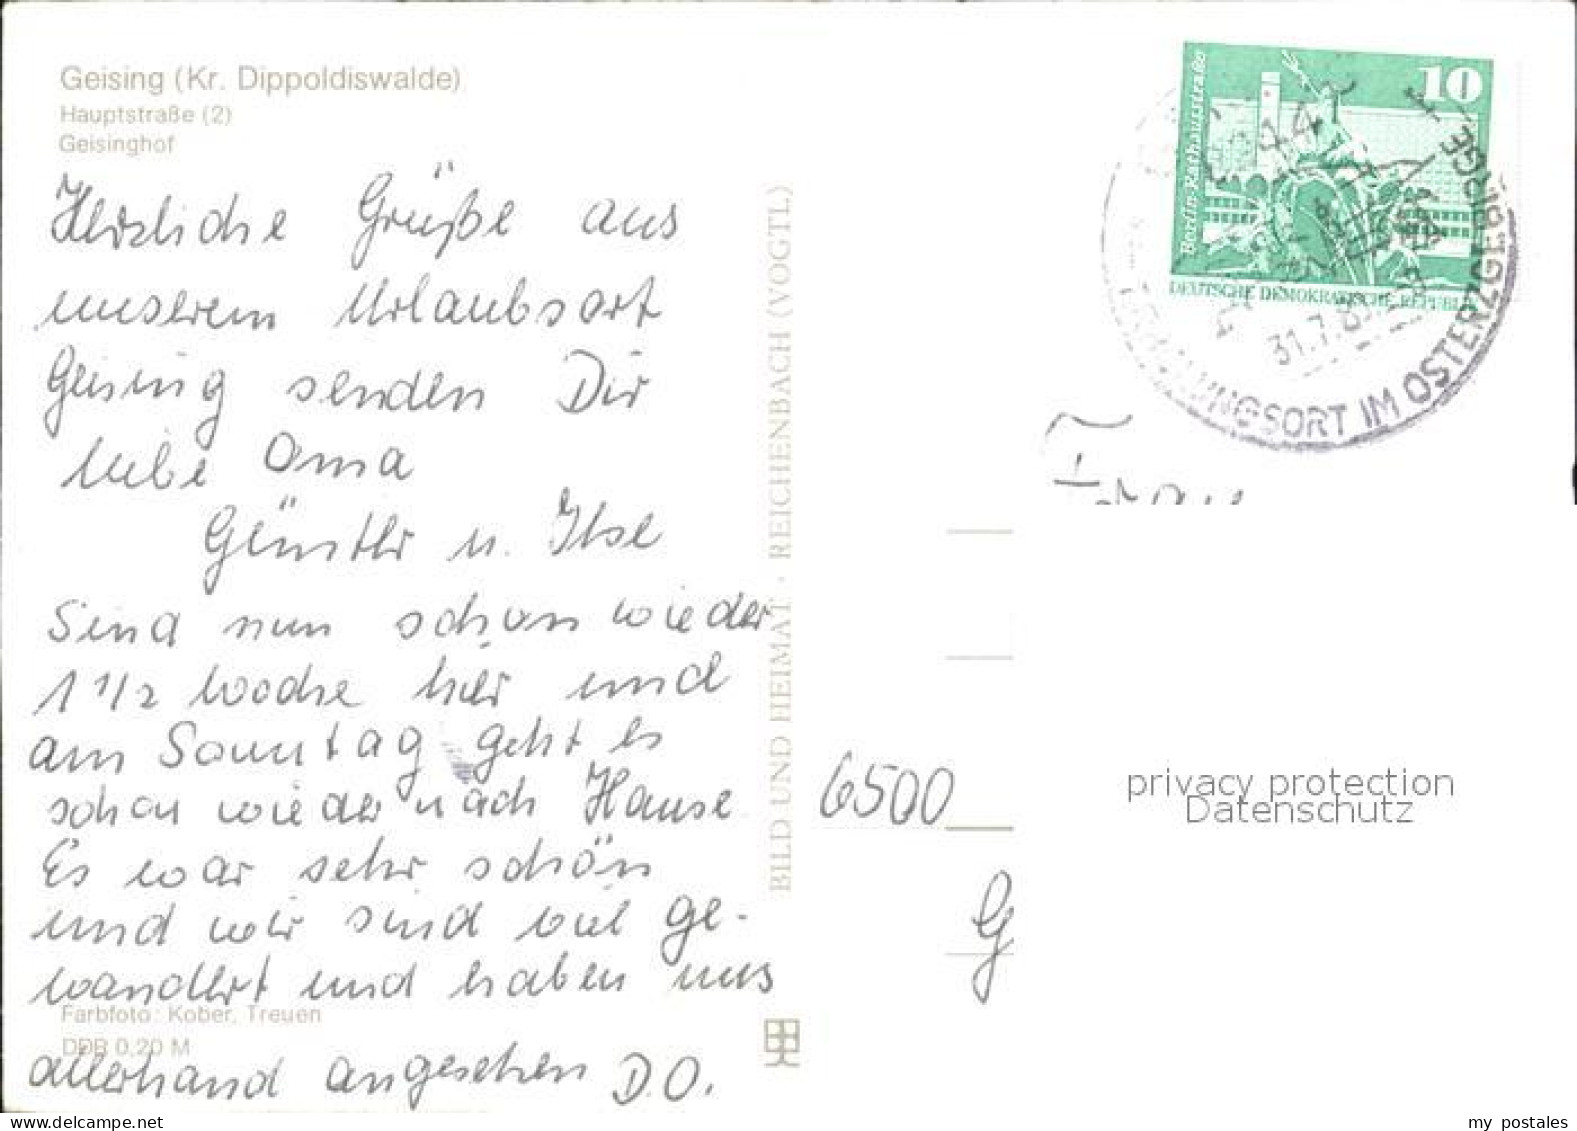 Geising (Kr. Dippoldiswalde)
Hauptstraße (2)
Geisinghof
Herzliche Grüße aus
unserem Urlaubsort
Geising senden Dir
liebe Oma
Günther u. Ilse
Sind nun schon wieder
1 1/2 Woche hier und
am Sonntag geht es
schon wieder nach Hause
Es war sehr schön
und wir sind viel ge-
wandert und haben uns
allerhand angesehen D.O.
Farbfoto: Kober, Treuen
DDR 0,20 M
BILD UND HEIMAT · REICHENBACH (VOGTL)
10
Berlin-Rathausstraße
DEUTSCHE DEMOKRATISCHE REPUBLIK
31.7.8
UNGSORT IM OSTERZGEBIRGE
Frau
6500
G
privacy protection
Datenschutz
my postales